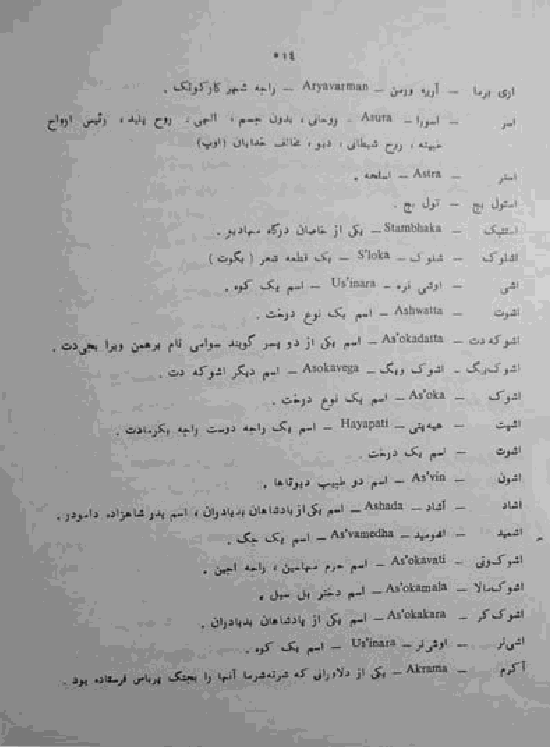 ٥١٤
اری برما — آریه ورمن — Aryavarman — راجه شهر کارکوتک .
اسر — اسورا — Asura — روحانی ، بدون جسم ، الهی ، روح پلید ، رئیس ارواح
خبیثه ، روح شیطانی ، دیو ، مخالف خدایان (اوپ)
استر — Astra — اسلحه .
استول بچ — تول بچ .
استنبک — Stambhaka — یکی از خاصان درگاه مهادیو .
اشلوک — شلوک — S'loka — یک قطعه شعر ( بگوت )
اشی — اوشی نره — Us'inara — اسم یک کوه .
اشوت — Ashwatta — اسم یک نوع درخت .
اشوکه دت — As'okadatta — اسم یکی از دو پسر گویند سوامی نام برهمن ویرا بجی‌دت .
اشوک‌بیگ — اشوک ویگ — Asokavega — اسم دیگر اشوکه دت .
اشوک — As'oka — اسم یک نوع درخت .
اشپت — هیه‌پتی — Hayapati — اسم یک راجه دوست راجه بکرمادت .
اشوت — اسم یک درخت .
اشون — As'vin — اسم دو طبیب دیوتاها .
اشاد — آشاد — Ashada — اسم یکی از پادشاهان بدیادران ، اسم پدو شاهزاده دامودر .
اشمید — اشومید — As'vamedha — اسم یک جگ .
اشوک‌وتی — As'okavati — اسم حرم مهاسین ، راجه اجین .
اشوک‌مالا — As'okamala — اسم دختر بل سیل .
اشوک کر — As'okakara — اسم یکی از پادشاهان بدیادران .
اشی‌نر — اوشی‌نر — Us'inara — اسم یک کوه .
آکرم — Akrama — یکی از دلاورانی که شرته‌شرما آنها را بجنگ پرباس فرستاده بود .